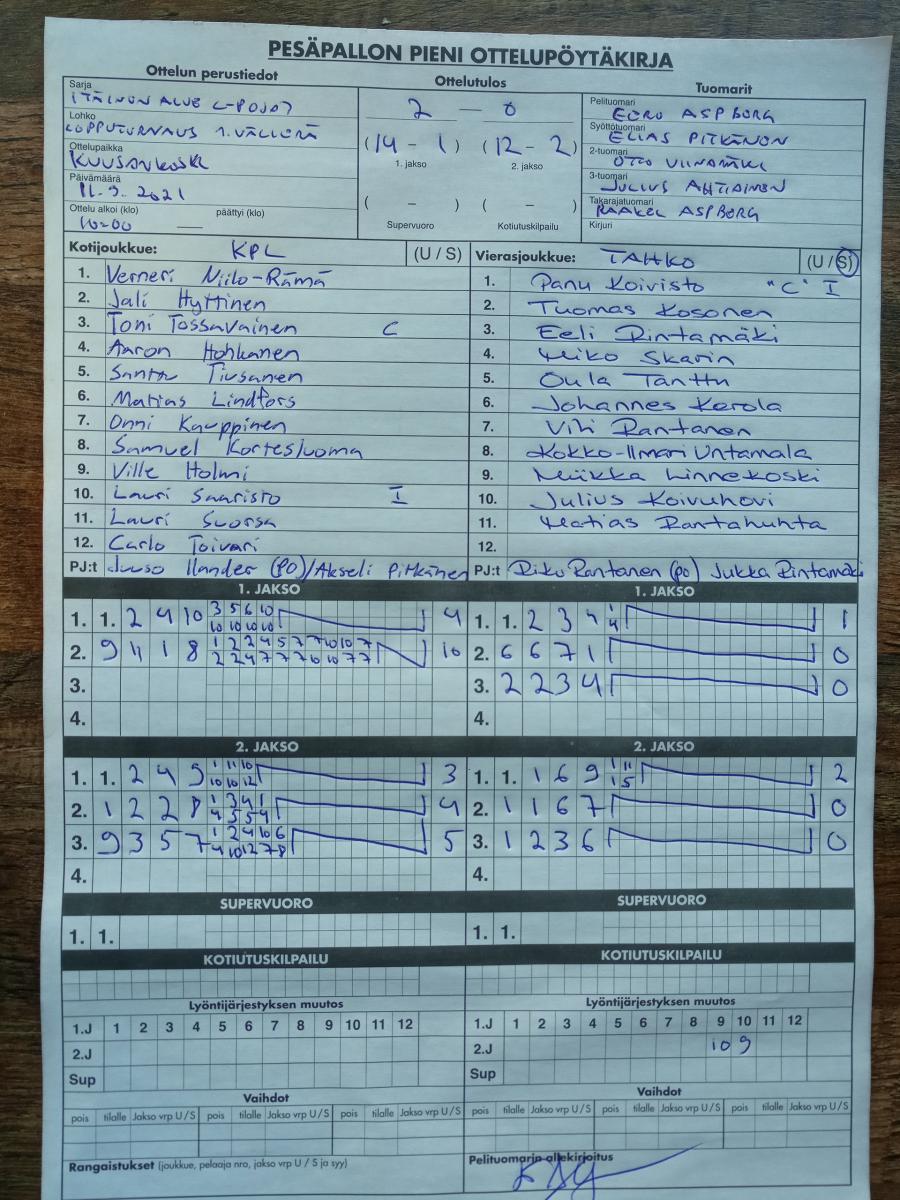 PESÄPALLON PIENI OTTELUPÖYTÄKIRJA
Ottelun perustiedot
Ottelutulos
Tuomarit
Sarja
ITÄINEN ALUE C-POJAT
Lohko
LOPPUTURNAUS 1. VÄLIERÄ
Ottelupaikka
KUUSANKOSKI
Päivämäärä
11.9.2021
Ottelu alkoi (klo) päättyi (klo)
10:00 —
2 — 0
(14 - 1) (12 - 2)
1. jakso 2. jakso
( - ) ( - )
Supervuoro Kotiutuskilpailu
Pelituomari
EERO ASPBORG
Syöttötuomari
ELIAS PITKÄNEN
2-tuomari
OTTO VIINAMÄKI
3-tuomari
JULIUS AHTIAINEN
Takarajatuomari
RAAKEL ASPBORG
Kirjuri
Kotijoukkue: KPL (U / S)
1. Verneri Niilo-Rämä
2. Jali Hyttinen
3. Toni Tossavainen C
4. Aaron Hohkanen
5. Santtu Tiusanen
6. Matias Lindfors
7. Onni Kauppinen
8. Samuel Kortesluoma
9. Ville Holmi
10. Lauri Saaristo I
11. Lauri Suorsa
12. Carlo Toivari
PJ:t Juuso Ilander (PO)/Akseli Pitkänen
Vierasjoukkue: TAHKO (U / S)
1. Panu Koivisto "C" I
2. Tuomas Kosonen
3. Eeli Rintamäki
4. Miko Skarin
5. Oula Tanttu
6. Johannes Kerola
7. Vili Rantanen
8. Kokko-Ilmari Untamala
9. Miikka Linnekoski
10. Julius Koivuhovi
11. Matias Rantahuhta
12.
PJ:t Riku Rantanen (po) Jukka Rintamäki
1. JAKSO
1. 1. 2 4 10 3 5 6 10 4
10 10 10 10
2. 9 11 1 8 1 2 2 4 5 7 7 10 10 7 10
2 2 4 7 7 7 10 10 7 7
3.
4.
1. JAKSO
1. 1. 2 3 4 1 1
4
2. 6 6 7 1 0
3. 2 2 3 4 0
4.
2. JAKSO
1. 1. 2 4 9 1 11 10 3
10 10 12
2. 1 2 2 8 1 3 4 1 4
4 5 5 4
3. 9 3 5 7 1 2 4 10 6 5
4 10 12 7 8
4.
2. JAKSO
1. 1. 1 6 9 1 11 2
1 5
2. 1 1 6 7 0
3. 1 2 3 6 0
4.
SUPERVUORO
1. 1.
SUPERVUORO
1. 1.
KOTIUTUSKILPAILU
KOTIUTUSKILPAILU
Lyöntijärjestyksen muutos
1.J 1 2 3 4 5 6 7 8 9 10 11 12
2.J
Sup
Lyöntijärjestyksen muutos
1.J 1 2 3 4 5 6 7 8 9 10 11 12
2.J 10 9
Sup
Vaihdot
pois tilalle Jakso vrp U / S pois tilalle Jakso vrp U / S pois tilalle Jakso vrp U / S
Vaihdot
pois tilalle Jakso vrp U / S pois tilalle Jakso vrp U / S pois tilalle Jakso vrp U / S
Rangaistukset (joukkue, pelaaja nro, jakso vrp U / S ja syy)
Pelituomarin allekirjoitus